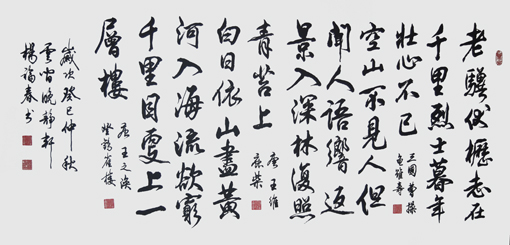 老驥伏櫪志在
千里烈士暮年
壯心不已
三國曹操
龜雖壽
空山不見人但
聞人語響返
景入深林復照
青苔上
唐王維
鹿柴
白日依山盡黃
河入海流欲窮
千里目更上一
層樓
唐王之渙
登鸛雀樓
歲次癸巳仲秋
晚靜軒
楊福春書